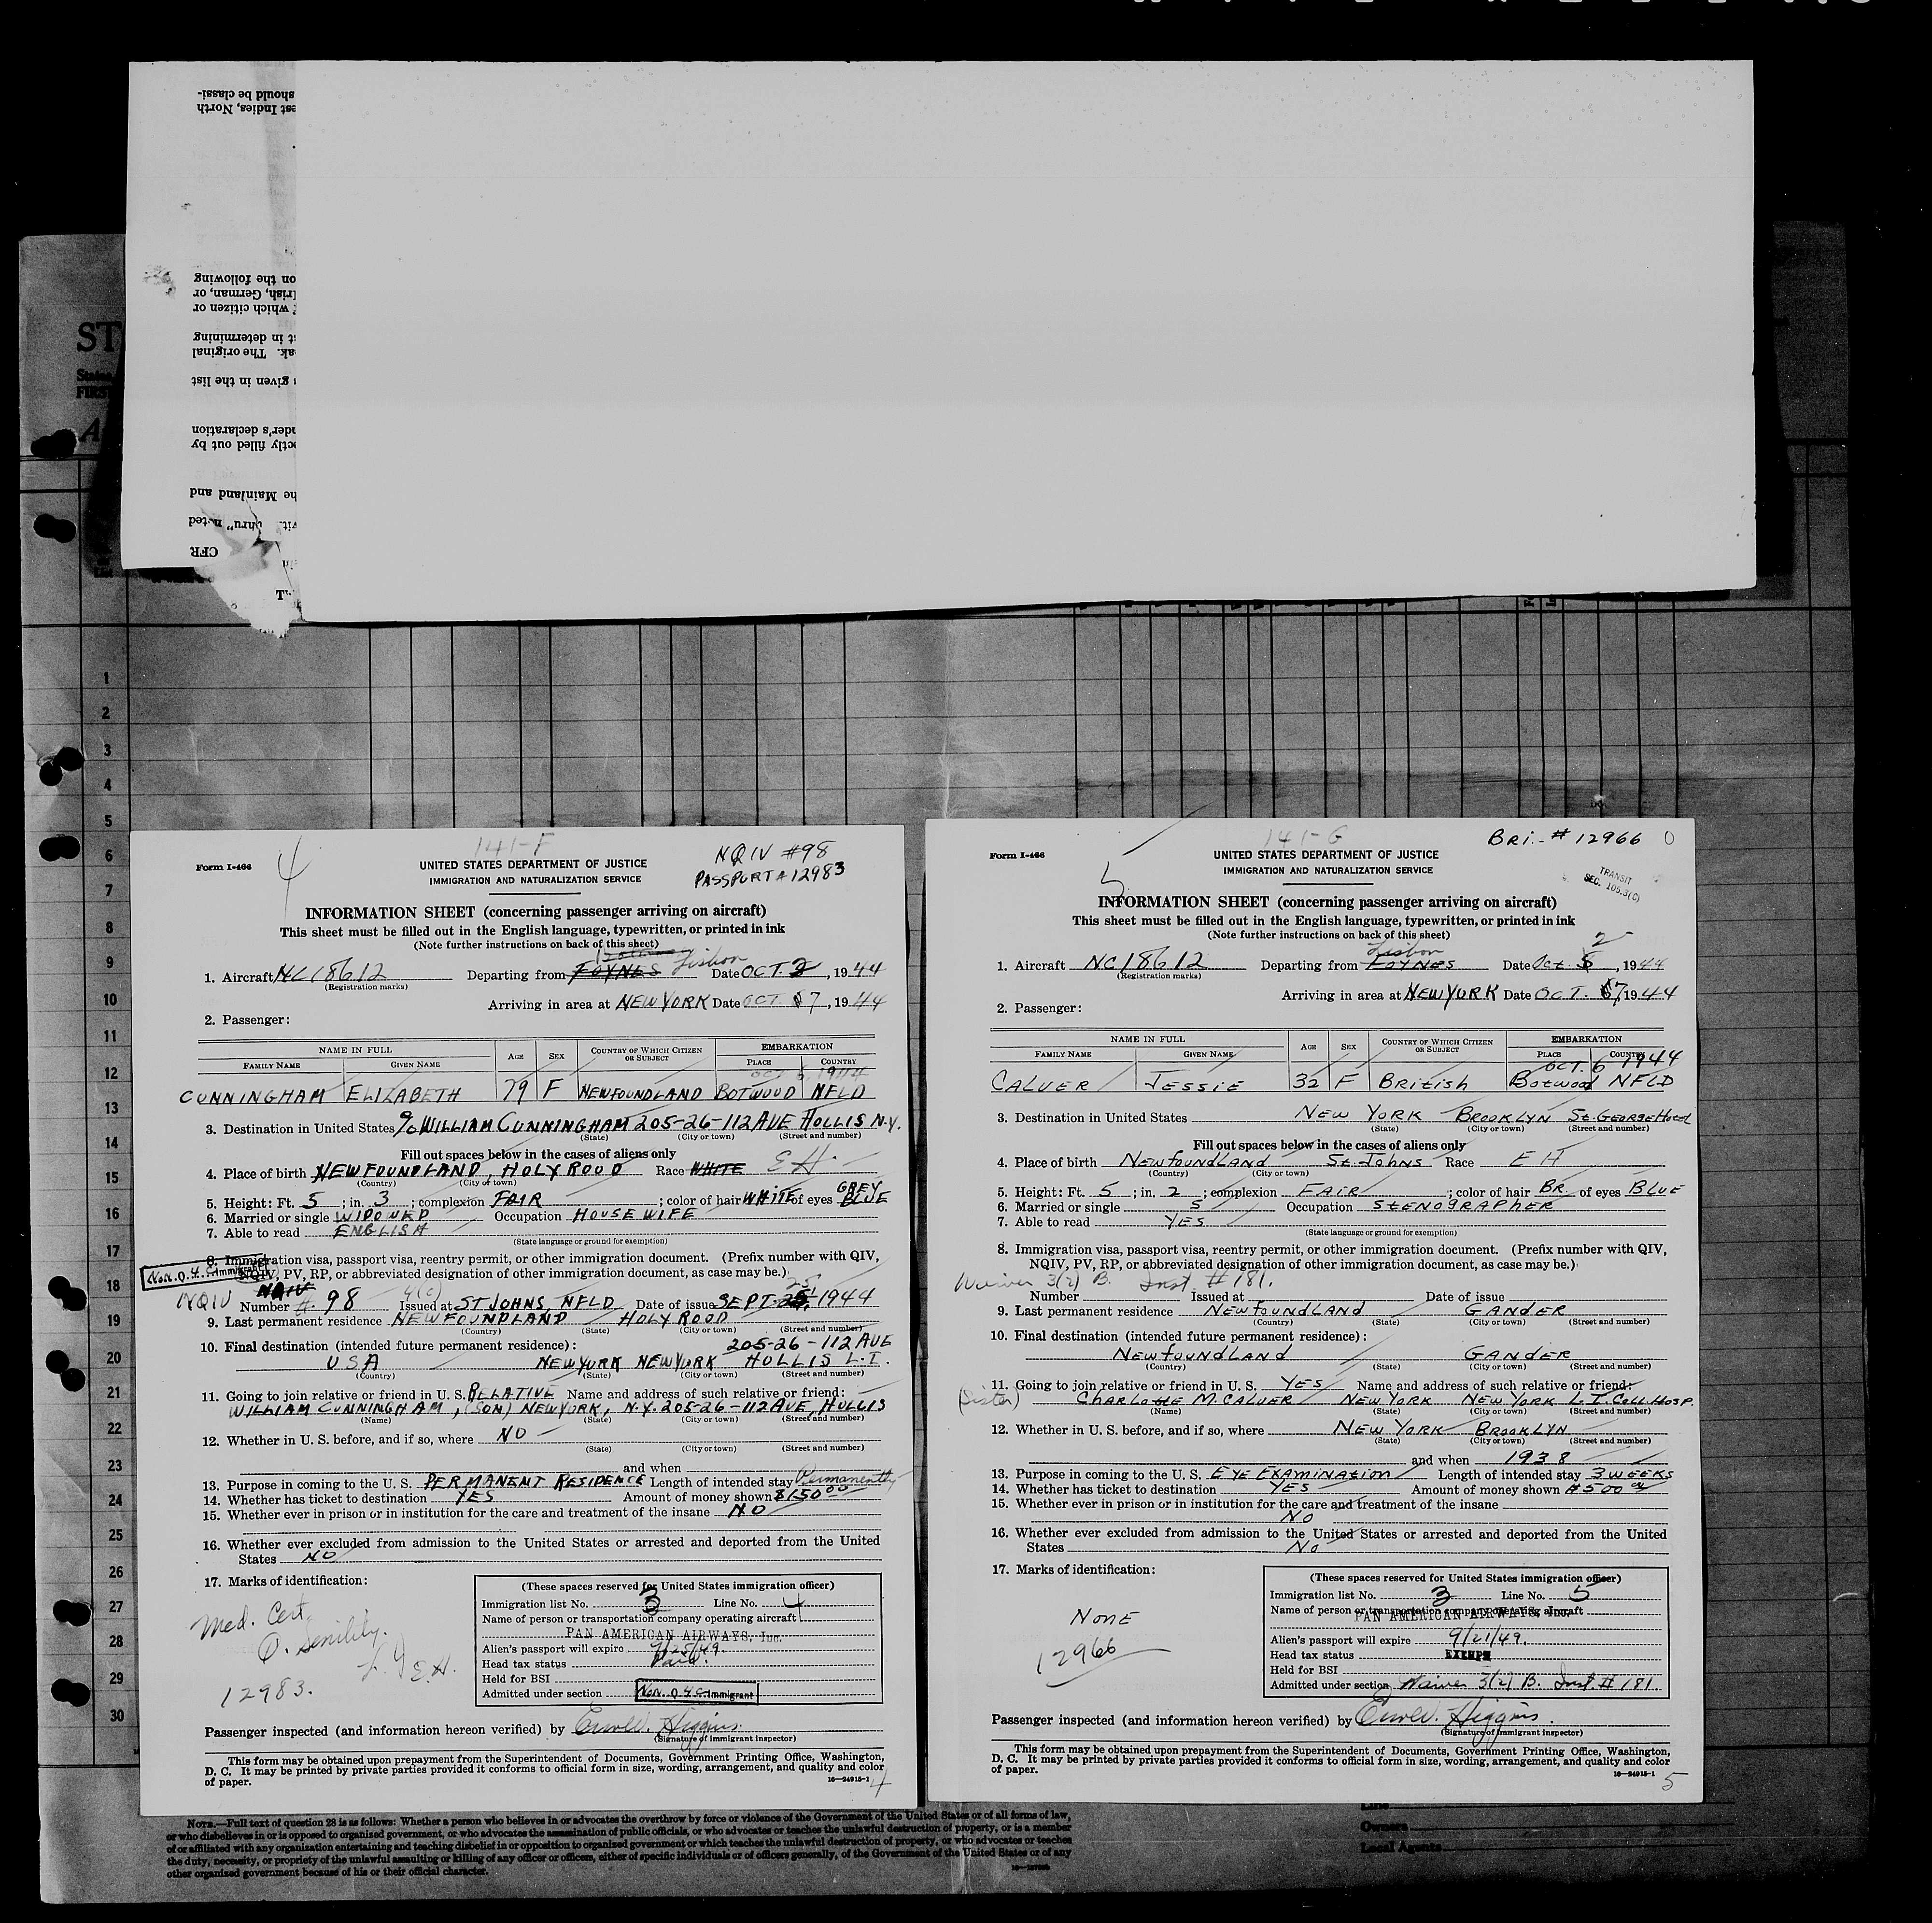 should be classi-
est Indies, North
on the following
Irish, German, or
which citizen or
st in determining
ak. The original
s given in the list
nder's declaration
ctly filled out by
he Mainland and
CFR
ST
FIRS
A
1
2
3
4
5
6
7
8
9
10
11
12
13
14
15
16
17
18
19
20
21
22
23
24
25
26
27
28
29
30
141-F
4
Form I-466
NQIV #98
UNITED STATES DEPARTMENT OF JUSTICE
PASSPORT # 12983
IMMIGRATION AND NATURALIZATION SERVICE
INFORMATION SHEET (concerning passenger arriving on aircraft)
This sheet must be filled out in the English language, typewritten, or printed in ink
(Note further instructions on back of this sheet)
1. Aircraft NC18612 Departing from FOYNES Lisbon Date OCT. 2, 1944
(Registration marks)
Arriving in area at NEW YORK Date OCT 7, 1944
2. Passenger:
NAME IN FULL AGE SEX COUNTRY OF WHICH CITIZEN OR SUBJECT EMBARKATION
FAMILY NAME GIVEN NAME PLACE COUNTRY
OCT 6, 1944
CUNNINGHAM ELIZABETH 79 F NEWFOUNDLAND BOTWOOD NFLD
3. Destination in United States % WILLIAM CUNNINGHAM 205-26-112 AVE HOLLIS N.Y.
(State) (City or town) (Street and number)
Fill out spaces below in the cases of aliens only
4. Place of birth NEWFOUNDLAND, HOLY ROOD Race WHITE EH.
(Country) (City or town)
5. Height: Ft. 5; in. 3; complexion FAIR; color of hair WHITE of eyes GREY BLUE
6. Married or single WIDOWED Occupation HOUSEWIFE
7. Able to read ENGLISH
(State language or ground for exemption)
8. Immigration visa, passport visa, reentry permit, or other immigration document. (Prefix number with QIV,
NQIV, PV, RP, or abbreviated designation of other immigration document, as case may be.)
Non. Q. 4c Immigrant
NQIV NQIV 4(c) 25,
Number # 98 Issued at ST JOHNS, NFLD Date of issue SEPT. 1944
9. Last permanent residence NEWFOUNDLAND HOLY ROOD
(Country) (State) (City or town) (Street and number)
10. Final destination (intended future permanent residence): 205-26-112 AVE
USA NEW YORK NEW YORK HOLLIS L.I.
(Country) (State) (City or town) (Street and number)
11. Going to join relative or friend in U. S. RELATIVE Name and address of such relative or friend:
WILLIAM CUNNINGHAM, (SON) NEW YORK, N.Y. 205-26-112 AVE, HOLLIS
(Name) (State) (City or town) (Street and number)
12. Whether in U. S. before, and if so, where NO
(State) (City or town) (Street and number)
and when
13. Purpose in coming to the U. S. PERMANENT RESIDENCE Length of intended stay Permanently
14. Whether has ticket to destination YES Amount of money shown $150 00
15. Whether ever in prison or in institution for the care and treatment of the insane NO
16. Whether ever excluded from admission to the United States or arrested and deported from the United
States NO
17. Marks of identification:
Med. Cert.
senility.
E.H.
12983.
(These spaces reserved for United States immigration officer)
Immigration list No. 3 Line No. 4
Name of person or transportation company operating aircraft
PAN AMERICAN AIRWAYS, Inc.
Alien's passport will expire 7/25/49.
Head tax status Paid.
Held for BSI
Admitted under section Non. Q 4c Immigrant
Passenger inspected (and information hereon verified) by Higgins.
(Signature of immigrant inspector)
This form may be obtained upon prepayment from the Superintendent of Documents, Government Printing Office, Washington,
D. C. It may be printed by private parties provided it conforms to official form in size, wording, arrangement, and quality and color
of paper.
16—24915-1
4
141-G
5
Form I-466
Bri.- # 12966 0
UNITED STATES DEPARTMENT OF JUSTICE
IMMIGRATION AND NATURALIZATION SERVICE
TRANSIT
SEC. 105.3(C)
INFORMATION SHEET (concerning passenger arriving on aircraft)
This sheet must be filled out in the English language, typewritten, or printed in ink
(Note further instructions on back of this sheet)
1. Aircraft NC18612 Departing from FOYNES Lisbon Date Oct. 2, 1944
(Registration marks)
Arriving in area at NEW YORK Date OCT. 7, 1944
2. Passenger:
NAME IN FULL AGE SEX COUNTRY OF WHICH CITIZEN OR SUBJECT EMBARKATION
FAMILY NAME GIVEN NAME PLACE COUNTRY
OCT. 6 1944
CALVER JESSIE 32 F British Botwood NFLD
3. Destination in United States NEW YORK BROOKLYN St. GEORGE Hotel
(State) (City or town) (Street and number)
Fill out spaces below in the cases of aliens only
4. Place of birth NEWfoundLAND St. Johns Race EH
(Country) (City or town)
5. Height: Ft. 5; in. 2; complexion FAIR; color of hair BR. of eyes BLUE
6. Married or single S Occupation StENOGRAPHER
7. Able to read YES
(State language or ground for exemption)
8. Immigration visa, passport visa, reentry permit, or other immigration document. (Prefix number with QIV,
NQIV, PV, RP, or abbreviated designation of other immigration document, as case may be.)
Waiver 3(2) B. Inst. # 181.
Number Issued at Date of issue
9. Last permanent residence NEWfoundLAND GANDER
(Country) (State) (City or town) (Street and number)
10. Final destination (intended future permanent residence):
NEWfoundLAND GANDER
(Country) (State) (City or town) (Street and number)
11. Going to join relative or friend in U. S. YES Name and address of such relative or friend:
(Sister) CHARLOttE M. CALVER NEW YORK NEW YORK L.I. Coll. Hosp.
(Name) (State) (City or town) (Street and number)
12. Whether in U. S. before, and if so, where NEW YORK BROOKLYN
(State) (City or town) (Street and number)
and when 1938
13. Purpose in coming to the U. S. EYE EXAMINAtion Length of intended stay 3 WEEKS
14. Whether has ticket to destination YES Amount of money shown $500
15. Whether ever in prison or in institution for the care and treatment of the insane
No
16. Whether ever excluded from admission to the United States or arrested and deported from the United
States No
17. Marks of identification:
NONE
12966
(These spaces reserved for United States immigration officer)
Immigration list No. 3 Line No. 5
Name of person or transportation company operating aircraft
PAN AMERICAN AIRWAYS, Inc.
Alien's passport will expire 9/21/49.
Head tax status EXEMPT
Held for BSI
Admitted under section Waiver 3(2) B. Inst. # 181
Passenger inspected (and information hereon verified) by Higgins.
(Signature of immigrant inspector)
This form may be obtained upon prepayment from the Superintendent of Documents, Government Printing Office, Washington,
D. C. It may be printed by private parties provided it conforms to official form in size, wording, arrangement, and quality and color
of paper.
16—24915-1
5
Line
Owners
Local Agents
NOTE.—Full text of question 28 is as follows: Whether a person who believes in or advocates the overthrow by force or violence of the Government of the United States or of all forms of law,
or who disbelieves in or is opposed to organized government, or who advocates the assassination of public officials, or who advocates or teaches the unlawful destruction of property, or is a member
of or affiliated with any organization entertaining and teaching disbelief in or opposition to organized government or which teaches the unlawful destruction of property, or who advocates or teaches
the duty, necessity, or propriety of the unlawful assaulting or killing of any officer or officers, either of specific individuals or of officers generally, of the Government of the United States or of any
other organized government because of his or their official character.